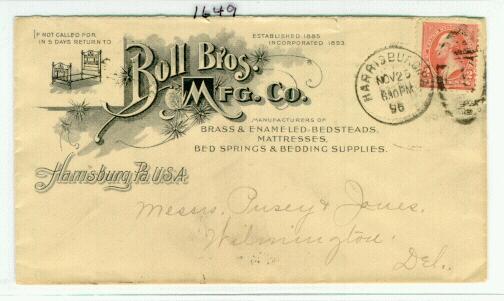 1649
IF NOT CALLED FOR
IN 5 DAYS RETURN TO
ESTABLISHED 1885
INCORPORATED 1893
Boll Bros.
MFG. CO.
MANUFACTURERS OF
BRASS & ENAMELED-BEDSTEADS,
MATTRESSES,
BED SPRINGS & BEDDING SUPPLIES.
Harrisburg, Pa. U.S.A.
HARRISBURG
NOV 25
6 PM
96
Messrs. Pusey & Jones,
Wilmington
Del.